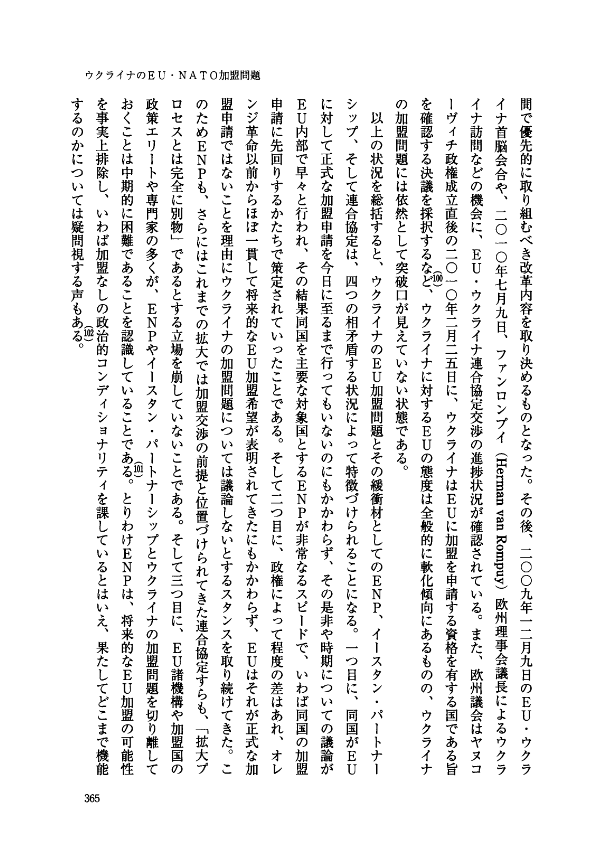 ウクライナのEU・NATO加盟問題
間で優先的に取り組むべき改革内容を取り決めるものとなった。その後、二〇〇九年一二月九日のEU・ウクラ
イナ首脳会合や、二〇一〇年七月九日、ファンロンプイ（Herman van Rompuy）欧州理事会議長によるウクラ
イナ訪問などの機会に、EU・ウクライナ連合協定交渉の進捗状況が確認されている。また、欧州議会はヤヌコ
ーヴィチ政権成立直後の二〇一〇年二月二五日に、ウクライナはEUに加盟を申請する資格を有する国である旨
を確認する決議を採択するなど、(100)ウクライナに対するEUの態度は全般的に軟化傾向にあるものの、ウクライナ
の加盟問題には依然として突破口が見えていない状態である。
以上の状況を総括すると、ウクライナのEU加盟問題とその緩衝材としてのENP、イースタン・パートナー
シップ、そして連合協定は、四つの相矛盾する状況によって特徴づけられることになる。一つ目に、同国がEU
に対して正式な加盟申請を今日に至るまで行ってもいないのにもかかわらず、その是非や時期についての議論が
EU内部で早々と行われ、その結果同国を主要な対象国とするENPが非常なるスピードで、いわば同国の加盟
申請に先回りするかたちで策定されていったことである。そして二つ目に、政権によって程度の差はあれ、オレ
ンジ革命以前からほぼ一貫して将来的なEU加盟希望が表明されてきたにもかかわらず、EUはそれが正式な加
盟申請ではないことを理由にウクライナの加盟問題については議論しないとするスタンスを取り続けてきた。こ
のためENPも、さらにはこれまでの拡大では加盟交渉の前提と位置づけられてきた連合協定すらも、「拡大プ
ロセスとは完全に別物」であるとする立場を崩していないことである。そして三つ目に、EU諸機構や加盟国の
政策エリートや専門家の多くが、ENPやイースタン・パートナーシップとウクライナの加盟問題を切り離して
おくことは中期的に困難であることを認識していることである。(101)とりわけENPは、将来的なEU加盟の可能性
を事実上排除し、いわば加盟なしの政治的コンディショナリティを課しているとはいえ、果たしてどこまで機能
するのかについては疑問視する声もある。(102)
365